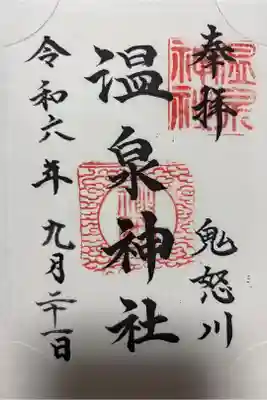 奉拝
鬼怒川
温泉神社
令和六年 九月二十一日
温泉
神社